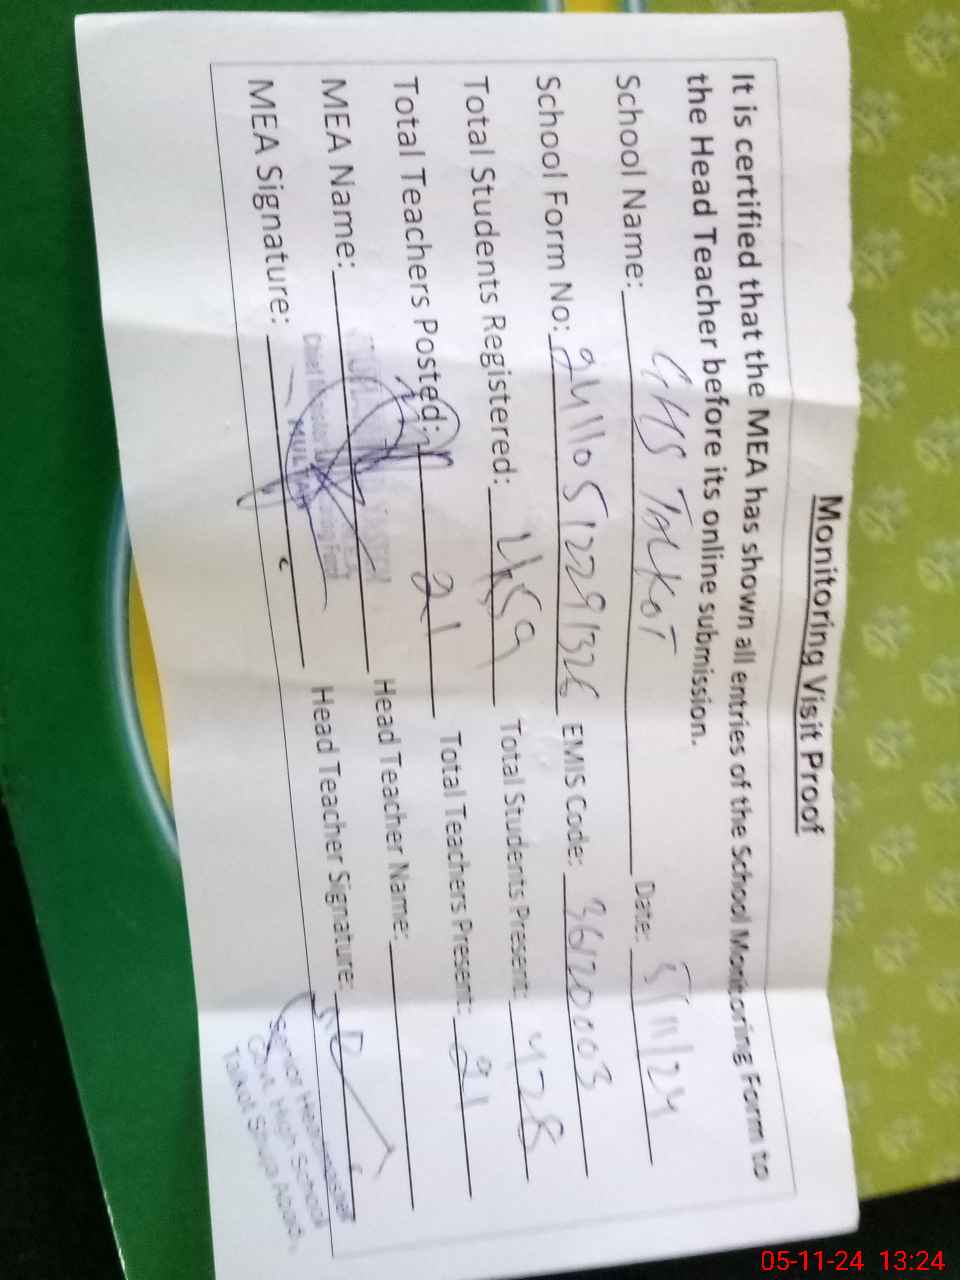 Monitoring Visit Proof
It is certified that the MEA has shown all entries of the School Monitoring Form to
the Head Teacher before its online submission.
School Name: GHS TALKOT Date: 5/11/24
School Form No: EMIS Code: 36120003
Total Students Registered: 459 Total Students Present: 428
Total Teachers Posted: 21 Total Teachers Present: 21
MEA Name: Head Teacher Name:
MEA Signature: Head Teacher Signature:
MULTAN
Senior Headmaster
Govt. High School
Talkot Shuja Abad.
05-11-24 13:24